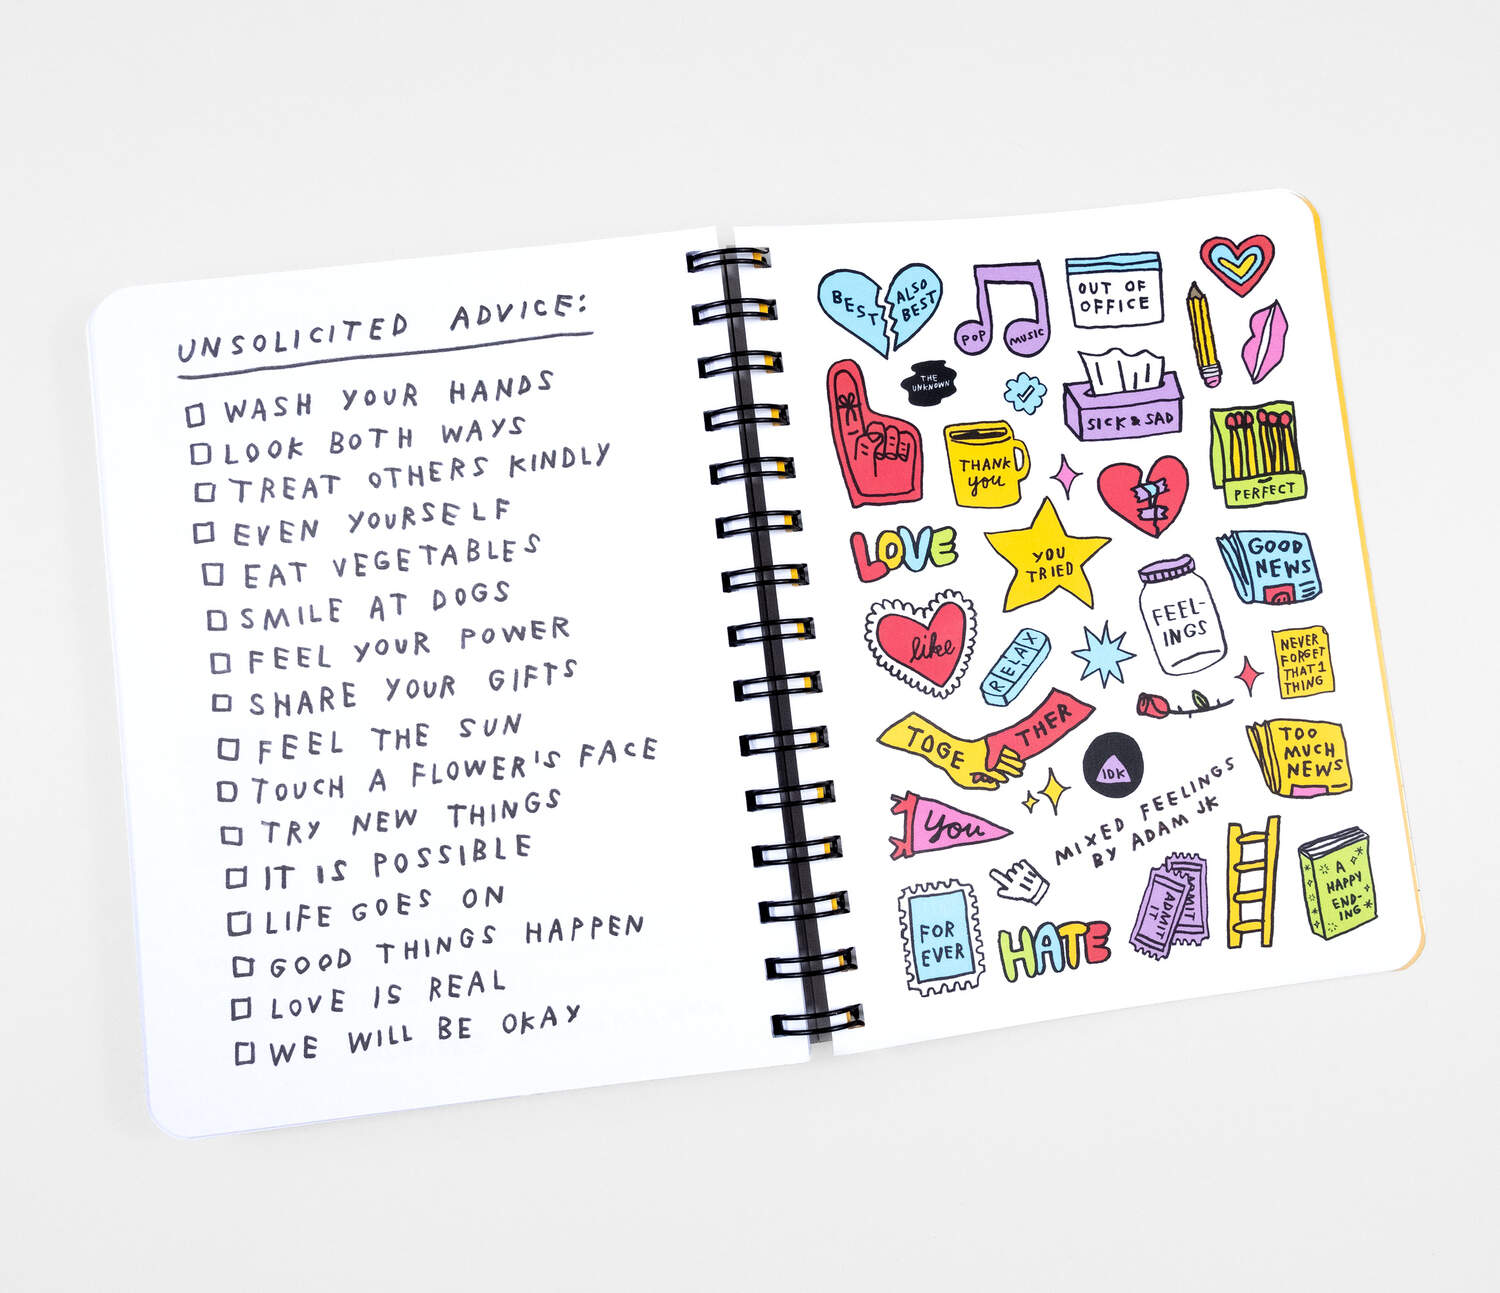 UNSOLICITED ADVICE:
WASH YOUR HANDS
LOOK BOTH WAYS
TREAT OTHERS KINDLY
EVEN YOURSELF
EAT VEGETABLES
SMILE AT DOGS
FEEL YOUR POWER
SHARE YOUR GIFTS
FEEL THE SUN
TOUCH A FLOWER'S FACE
TRY NEW THINGS
IT IS POSSIBLE
LIFE GOES ON
GOOD THINGS HAPPEN
LOVE IS REAL
WE WILL BE OKAY
BEST
ALSO
BEST
POP
MUSIC
OUT OF
OFFICE
THE
UNKNOWN
SICK & SAD
THANK
you
PERFECT
LOVE
YOU
TRIED
GOOD
NEWS
FEEL-
INGS
like
RELAX
NEVER
FORGET
THAT 1
THING
TOGE
THER
IDK
TOO
MUCH
NEWS
You
MIXED FEELINGS
BY ADAM JK
FOR
EVER
HATE
ADMIT
IT
ADMIT
A
HAPPY
END-
ING